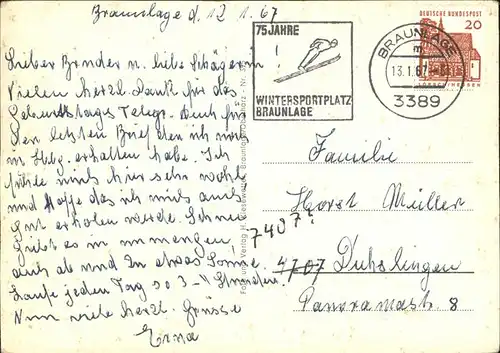 Braunlage d. 12 1. 67
Lieber Bruder u. liebe Schägerin!
Vielen herzl. Dank für das
Geburtstags Telegr. Auch für
den letzten Brief den ich noch
in Hbg. erhalten habe. Ich
fühle mich hier sehr wohl
und hoffe das ich mich auch
gut erholen werde. Schnee
giebt es in unmengen,
auch ab und zu etwas Sonne.
Laufe jeden Tag so 3-4 Stunden
Nun viele herzl. Grüsse
Erna
75 JAHRE
WINTERSPORTPLATZ
BRAUNLAGE
BRAUNLAGE
13.1.67
3389
DEUTSCHE BUNDESPOST
20
LORSCH/HESSEN
Foto und Verlag H.
Familie
Horst Müller
7407?
4707 Duhslingen
Panoramastr. 8